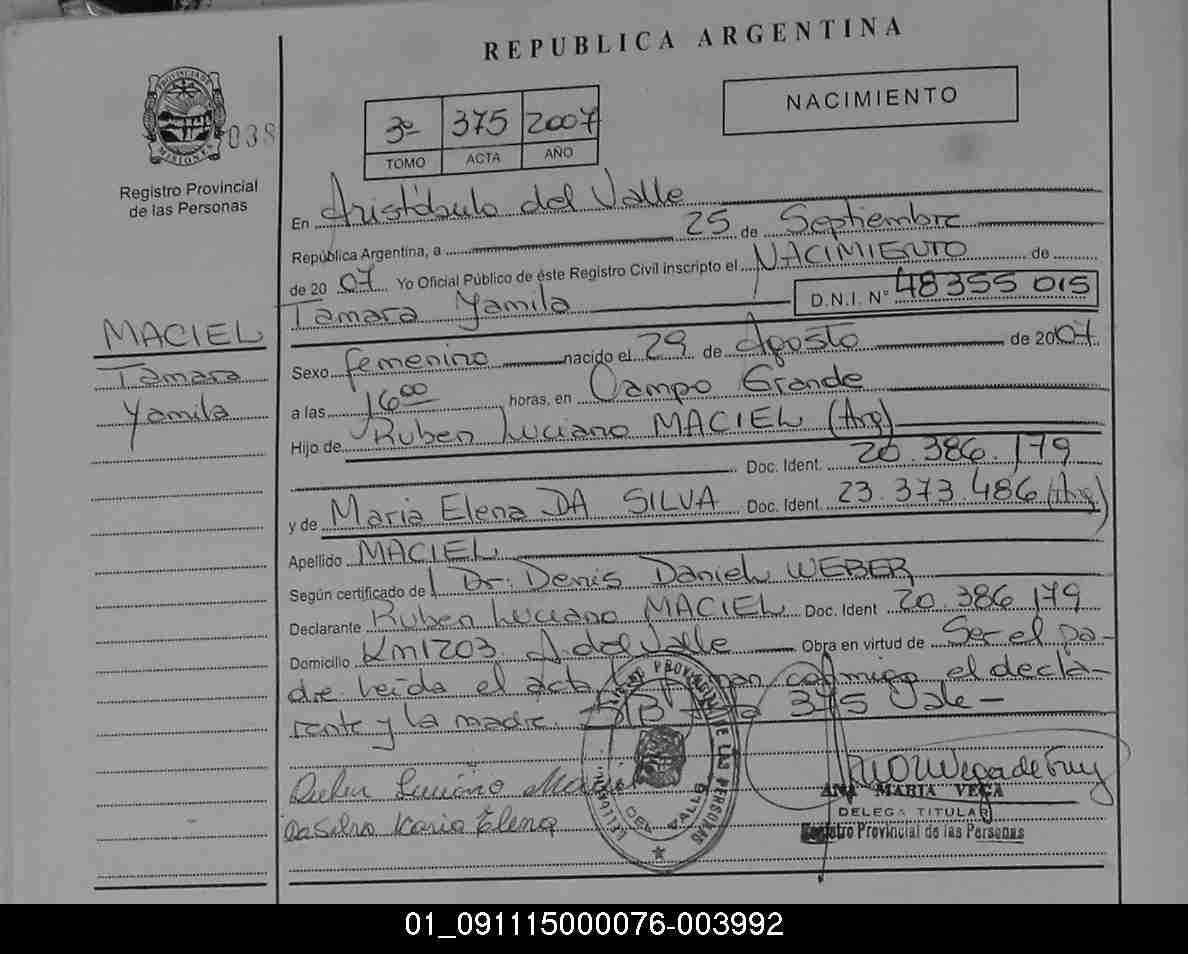 REPUBLICA ARGENTINA
PROVINCIA DE MISIONES
038
Registro Provincial
de las Personas
3º 375 2007
TOMO ACTA AÑO
NACIMIENTO
En Aristóbulo del Valle
República Argentina, a 25 de Septiembre
de 2007 Yo Oficial Público de éste Registro Civil inscripto el NACIMIENTO de
Tamara Yamila D.N.I. Nº 48355 015
MACIEL
Tamara
Yamila
Sexo femenino nacido el 29 de Agosto de 2007
a las 16 00 horas, en Campo Grande
Hijo de Ruben Luciano MACIEL (Arg)
Doc. Ident. 20.386.179
y de Maria Elena DA SILVA Doc. Ident. 23.373.486 (Arg)
Apellido MACIEL
Según certificado de Dr. Denis Daniel WEBER
Declarante Ruben Luciano MACIEL Doc. Ident 20.386 179
Domicilio Km1203 A. del Valle Obra en virtud de Ser el pa-
dre leída el acta conmigo el decla-
rante y la madre 375 Vale-
Ruben Luciano
Dasilva Elena
ANA MARIA VEGA
DELEGA TITULAR
Registro Provincial de las Personas
PROVINCIAL DE LAS PERSONAS
DEL VALLE
01_091115000076-003992